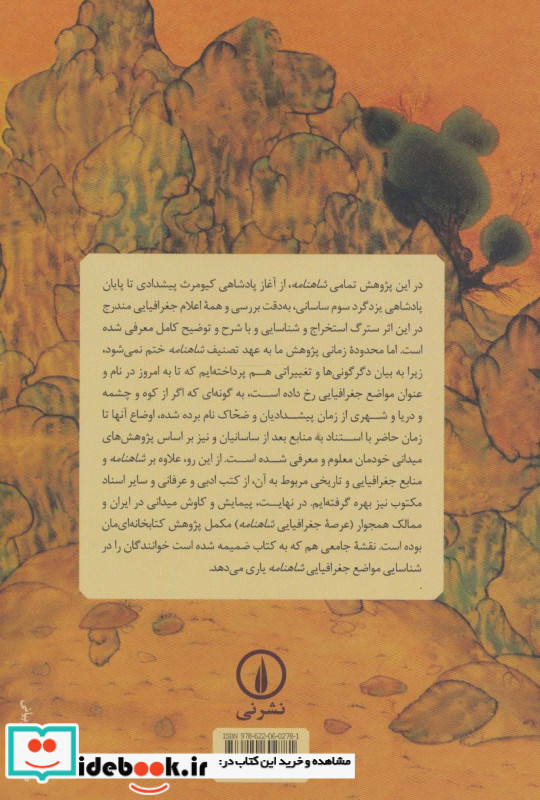 در این پژوهش تمامی شاهنامه، از آغاز پادشاهی کیومرث پیشدادی تا پایان
پادشاهی یزدگرد سوم ساسانی، به‌دقت بررسی و همهٔ اعلام جغرافیایی مندرج
در این اثر سترگ استخراج و شناسایی و با شرح و توضیح کامل معرفی شده
است. اما محدودهٔ زمانی پژوهش ما به عهد تصنیف شاهنامه ختم نمی‌شود،
زیرا به بیان دگرگونی‌ها و تغییراتی هم پرداخته‌ایم که تا به امروز در نام و
عنوان مواضع جغرافیایی رخ داده است، به گونه‌ای که اگر از کوه و چشمه
و دریا و شهری از زمان پیشدادیان و ضحّاک نام برده شده، اوضاع آنها تا
زمان حاضر با استناد به منابع بعد از ساسانیان و نیز بر اساس پژوهش‌های
میدانی خودمان معلوم و معرفی شده است. از این رو، علاوه بر شاهنامه و
منابع جغرافیایی و تاریخی مربوط به آن، از کتب ادبی و عرفانی و سایر اسناد
مکتوب نیز بهره گرفته‌ایم. در نهایت، پیمایش و کاوش میدانی در ایران و
ممالک همجوار (عرصهٔ جغرافیایی شاهنامه) مکمل پژوهش کتابخانه‌ای‌مان
بوده است. نقشهٔ جامعی هم که به کتاب ضمیمه شده است خوانندگان را در
شناسایی مواضع جغرافیایی شاهنامه یاری می‌دهد.
نشرنی
ISBN 978-622-06-0278-1
مشاهده و خرید این کتاب در:
idebook.ir